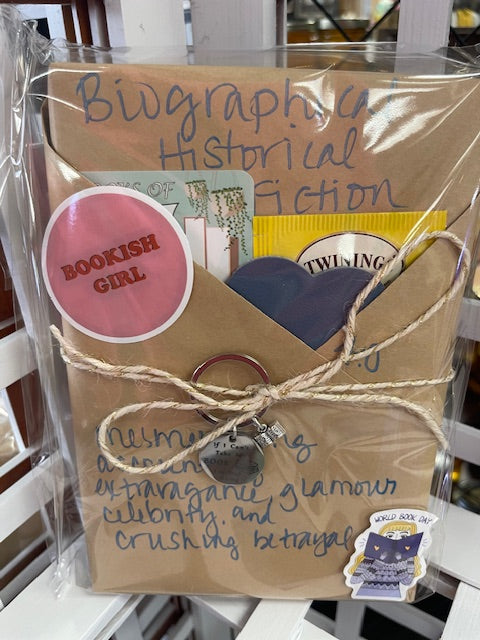 Biographical
Historical
Fiction
OF
BOOKISH
GIRL
TWININGS
If I Can't
Take
BOOK
extravagance, glamour
celebrity, and
crushing betrayal
WORLD BOOK DAY